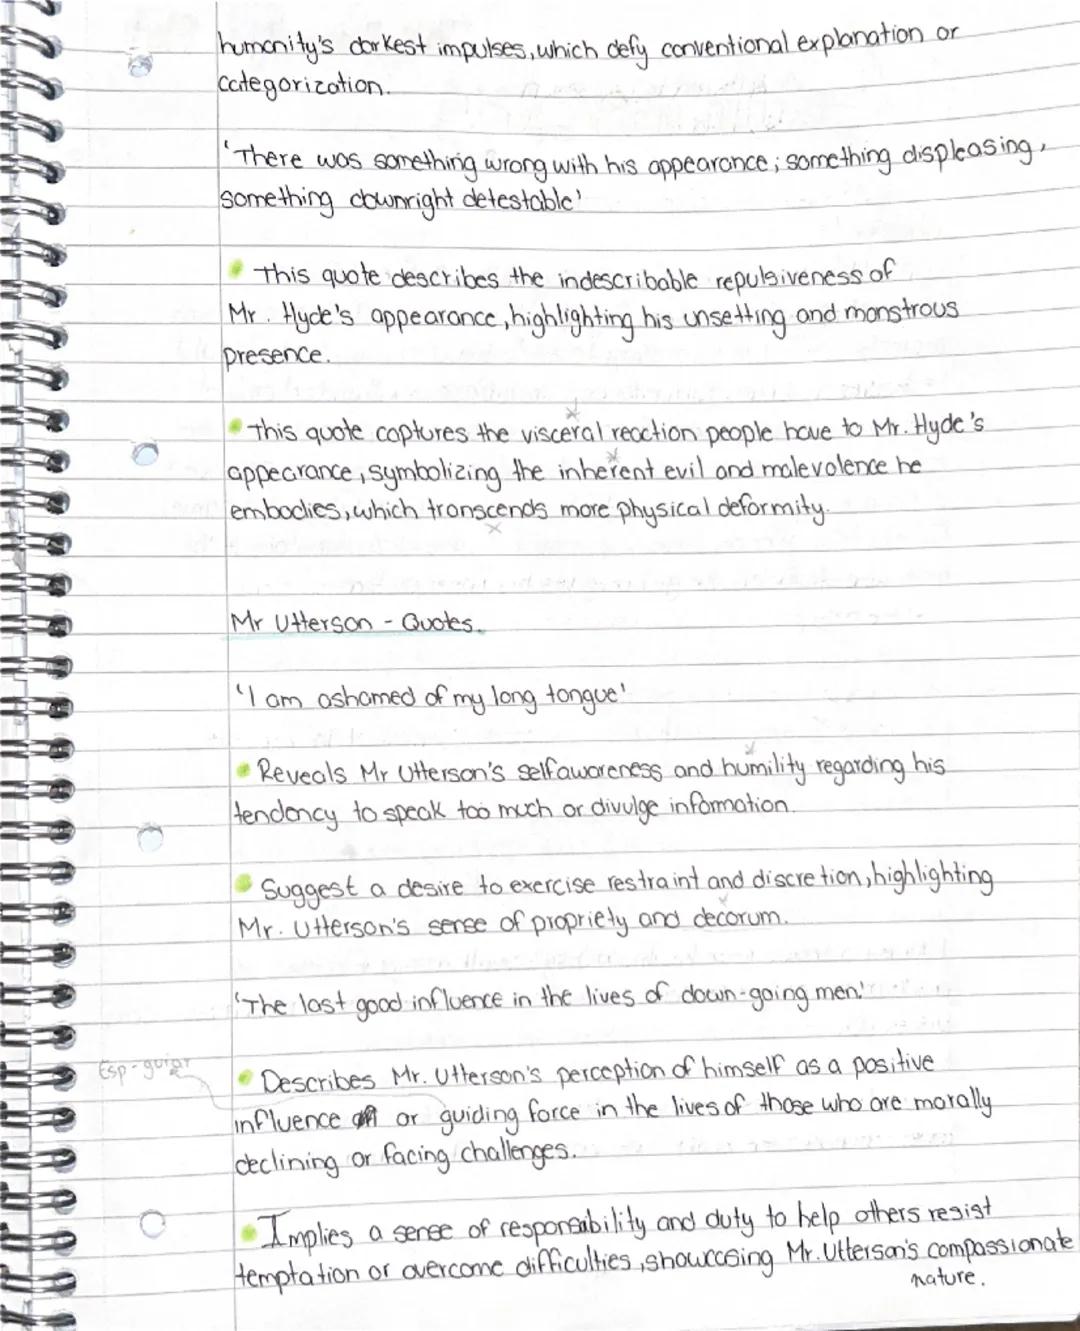 humanity's darkest impulses, which defy conventional explanation or
categorization.
'There was something wrong with his appearance; something displeasing,
something downright detestable'
This quote describes the indescribable repulsiveness of
Mr. Hyde's appearance, highlighting his unsetting and monstrous
presence.
This quote captures the visceral reaction people have to Mr. Hyde's
appearance, symbolizing the inherent evil and malevolence he
embodies, which transcends more physical deformity.
Mr Utterson - Quotes.
'I am ashamed of my long tongue'
Reveals Mr Utterson's selfawareness and humility regarding his
tendancy to speak too much or divulge information.
Suggest a desire to exercise restraint and discretion, highlighting
Mr. Utterson's sense of propriety and decorum.
'The last good influence in the lives of down-going men.'
Esp - guiar
Describes Mr. Utterson's perception of himself as a positive
influence or guiding force in the lives of those who are morally
declining or facing challenges.
Implies a sense of responsibility and duty to help others resist
temptation or overcome difficulties, showcasing Mr. Utterson's compassionate
nature.